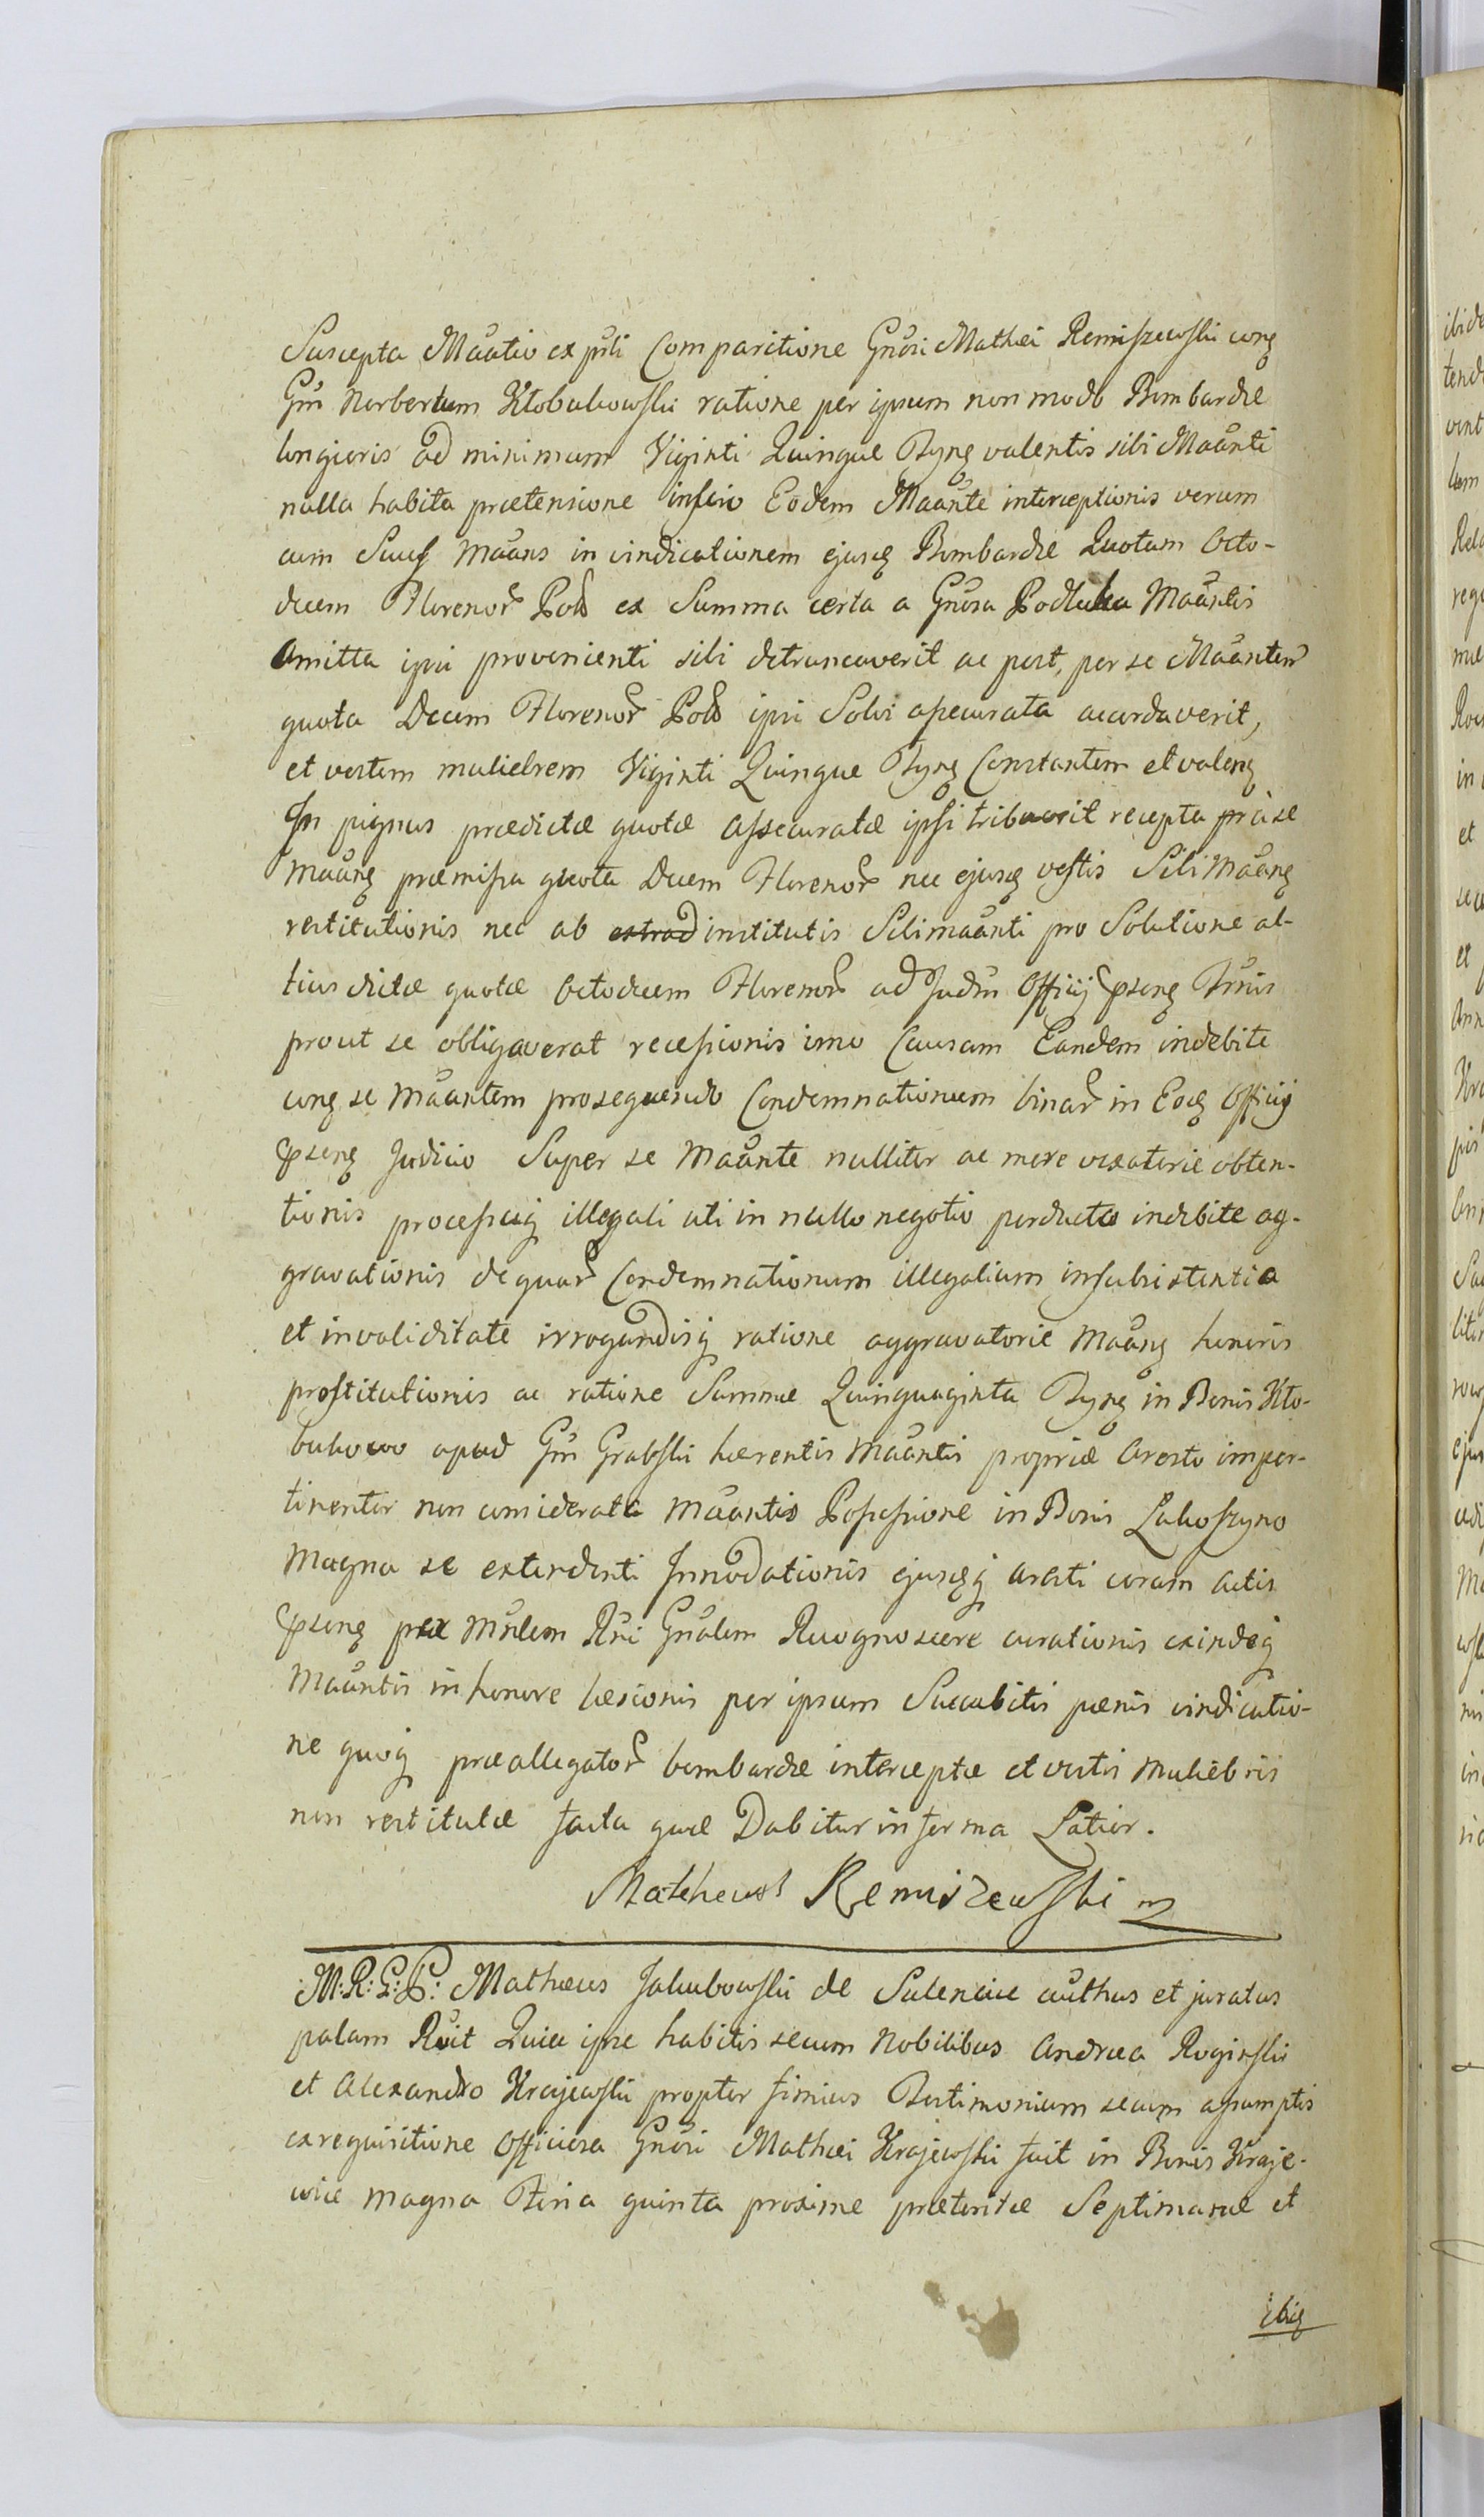 Suscepta Maãtio ex pñti Comparitione Gñosi Mathei Remiszewski conq
Gm Norbertum Kłobukowski ratione per ipsum non modo Bombardæ
longioris ad minimum Viginti Quinque Tynq valentis sibi Maãnti
nulla habita prætensione inscio Eodem Maãnte interceptionis verum
cum Maãns in vindicationem ejusq Bombardæ Quotam Octo-
decem Florenor Pol ex Summa certa a Gñosa Podłuska Maãntis
Amitta ipsi provenienti sibi detruncaverit ac post, per se Maãntem
quota Decem Florenor Pol ipsi Solvi assecurata acordaverit,
et vestem muliebrem Viginti Quinque Tynq Constantem et valenq
In pignus prædictæ quotæ assecuratæ ipsi tribuerit recepta præ se
Maãnq præmissa quota Decem Florenor nec ejusq vestis Sibi Maãnq
restitutionis nec ab institutis Sibi maãnti pro Solutione al-
tius dictæ quotæ Octodecem Florenor ad Judm Officij Psenq Trñis
prout se obligaverat recessionis imo Causam Eandem indebite
conq se Maãntem prosequendo Condemnationum binar in Eoq Officij
Psenq Judicio Super se Maãnte nulliter ac mere vexatorie obten-
tionis processuq illegali uti in nullo negotio perducto indebite ag-
gravationis de quar Condemnationum illegalium insubsistentia
et invaliditate irrogandisq ratione aggravatoriæ Maãnq honoris
prostitutionis ac ratione Summæ Quinquaginta Tynq in Bonis Kło-
bukowo apud Gm Grabski hærentis Maãntis propriæ Aresto imper-
tinenter non considerata Maãntis Possessione in Bonis Lakoszyno
Magna se extendenti Innodationis ejusqq aresti coram actis
Psenq Mñlem Rñi Gñalem Recognoscere curationis exindeq
Maãntis in honore læsionis per ipsum Succubitis pænis vindicatio-
ne quoq præallegator bombardæ interceptæ et vestis Muliebris
non restitutæ facta quæ Dabitur in forma Latior.
Matheus Remiszewski m
M: R: G: P: Mathæus Jakubowski de Sulencice aũthus et juratus
palam Rũit Quia ipse habitis secum Nobilibus Andrea Roginski
et Alexandro Krajewski propter firmius Testimonium secum assumptis
ex requisitione Officiosa Gñosi Mathei Krajewski fuit in Bonis Kraje-
wice magna Feria quinta proxime præteritæ Septimanæ et
ibiq